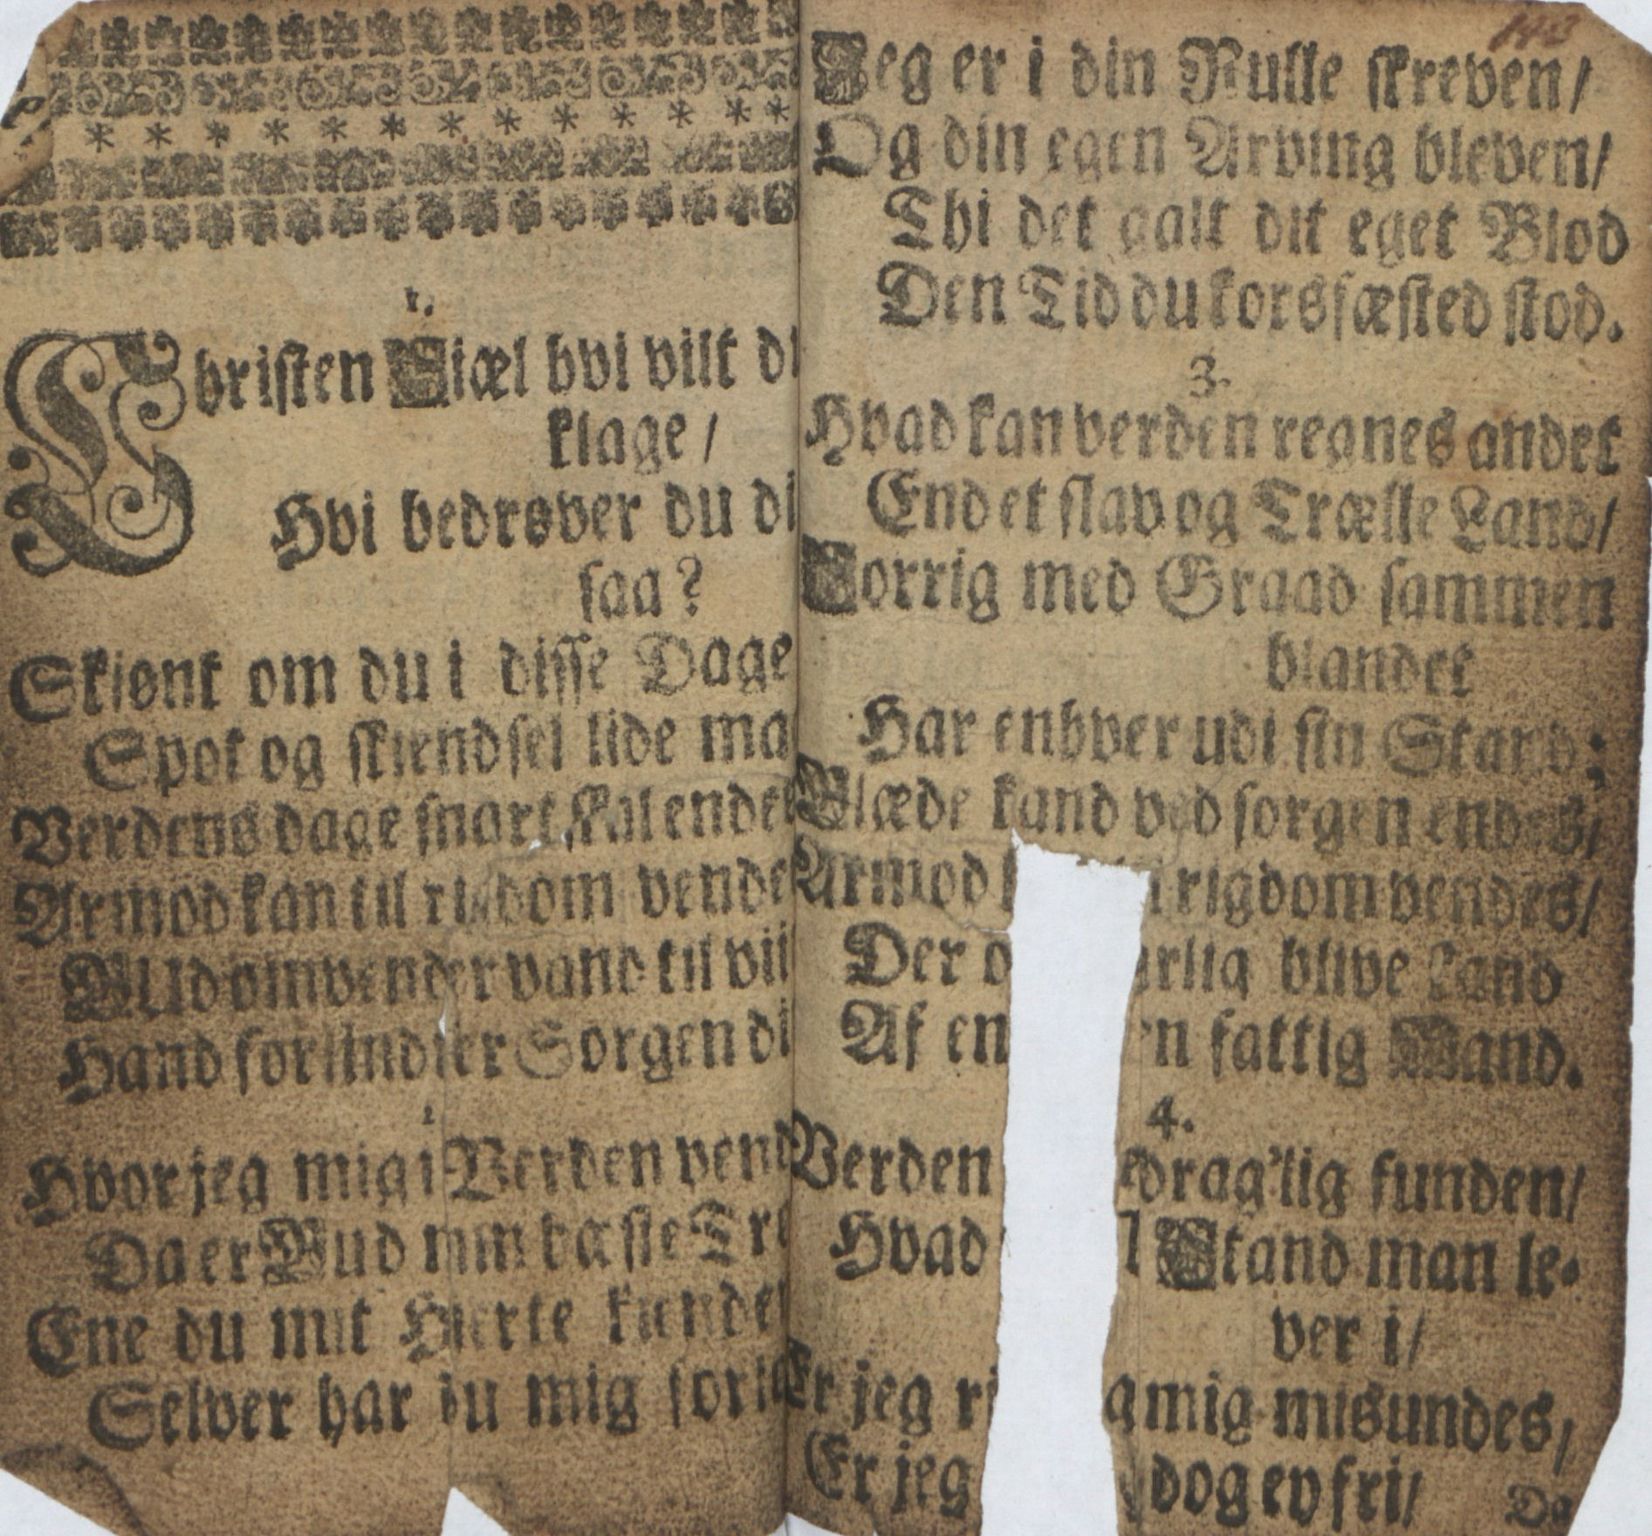 1.
Christen Siæl hvi vilt
klage /
Hvi bedrøver du
saa?
Skiønt om du i disse Dage
Spot og skiendsel lide
Verdens dage snart skal
Armod kan til
omvender vand til
Hand forlindrer Sorgen
Hvor jeg mig i Verden
Da er Gud min bæste
Ene du mit Hierte
Selver har du mig
143
Jeg er i din Rulle skreven/
Og din egen Arving bleven/
Thi det galt dit eget Blod
Den Tid du korsfæsted stod.
3.
Hvad kan verden regnes andet
End et slav og Trælle Land/
Sorrig med Graad sammen
blandet
Har enhver udi sin Stand;
Glæde kand ved sorgen endes/
Armod rigdom vendes/
Der blive Land
Af en fattig Mand.
4.
Verden funden/
Hvad Stand man le-
ver i/
Er jeg mig misundes,
Er jeg dog ey fri/
Da